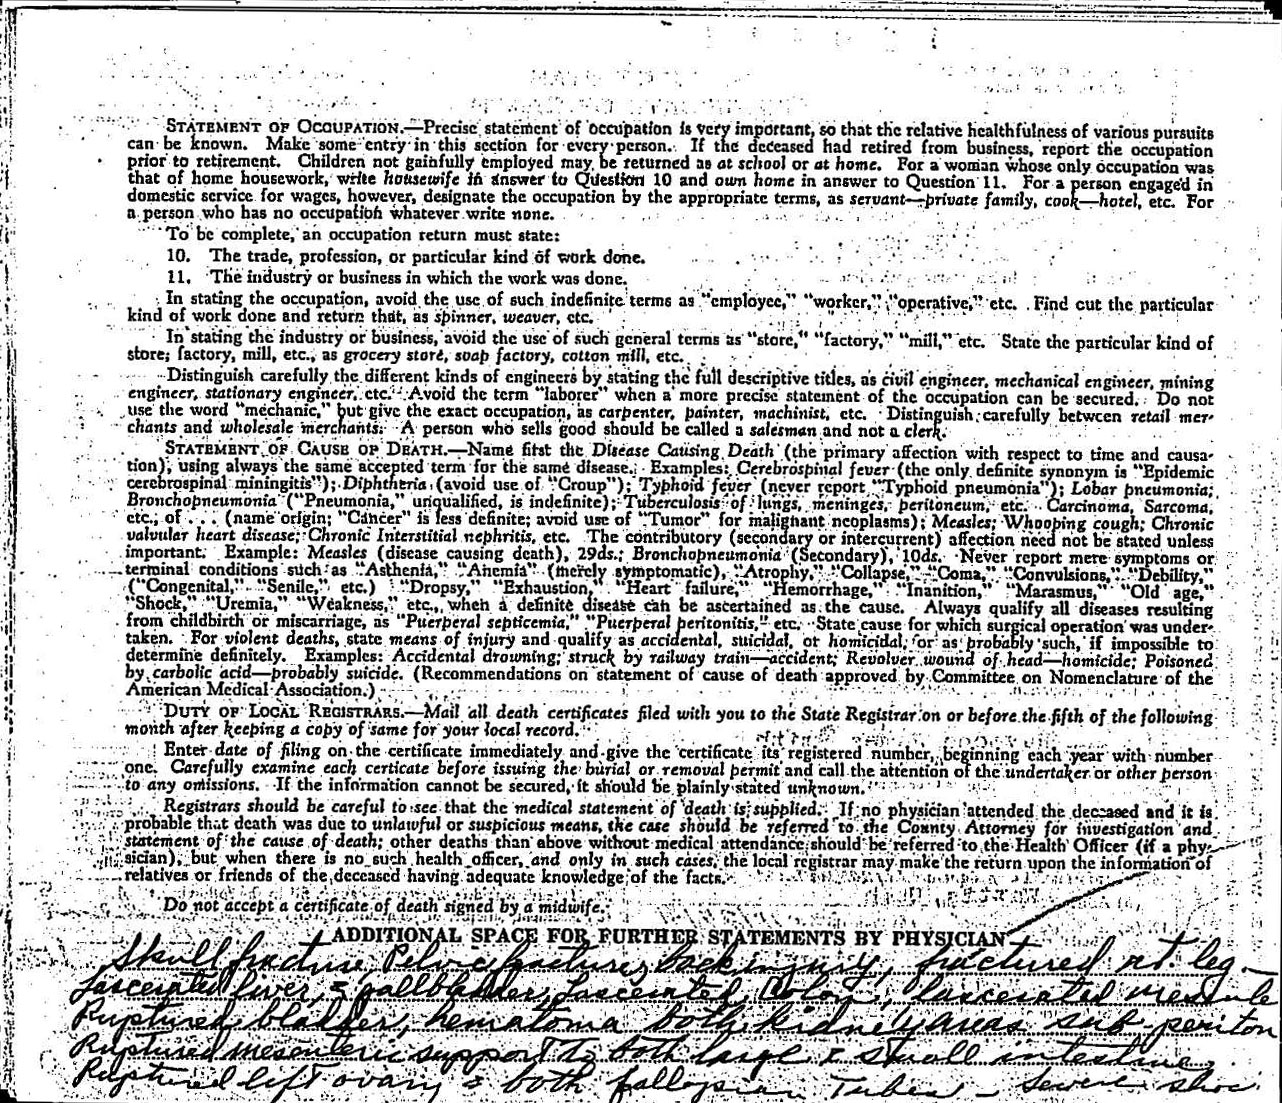 STATEMENT OF OCCUPATION.—Precise statement of occupation is very important, so that the relative healthfulness of various pursuits
can be known. Make some entry in this section for every person. If the deceased had retired from business, report the occupation
prior to retirement. Children not gainfully employed may be returned as at school or at home. For a woman whose only occupation was
that of home housework, write housewife in answer to Question 10 and own home in answer to Question 11. For a person engaged in
domestic service for wages, however, designate the occupation by the appropriate terms, as servant—private family, cook—hotel, etc. For
a person who has no occupation whatever write none.
To be complete, an occupation return must state:
10. The trade, profession, or particular kind of work done.
11. The industry or business in which the work was done.
In stating the occupation, avoid the use of such indefinite terms as "employee," "worker," "operative," etc. Find out the particular
kind of work done and return that, as spinner, weaver, etc.
In stating the industry or business, avoid the use of such general terms as "store," "factory," "mill," etc. State the particular kind of
store; factory, mill, etc., as grocery store, soap factory, cotton mill, etc.
Distinguish carefully the different kinds of engineers by stating the full descriptive titles, as civil engineer, mechanical engineer, mining
engineer, stationary engineer, etc. Avoid the term "laborer" when a more precise statement of the occupation can be secured. Do not
use the word "mechanic," but give the exact occupation, as carpenter, painter, machinist, etc. Distinguish carefully between retail mer-
chants and wholesale merchants. A person who sells good should be called a salesman and not a clerk.
STATEMENT OF CAUSE OF DEATH.—Name first the Disease Causing Death (the primary affection with respect to time and causa-
tion), using always the same accepted term for the same disease. Examples: Cerebrospinal fever (the only definite synonym is "Epidemic
cerebrospinal miningitis"); Diphtheria (avoid use of "Croup"); Typhoid fever (never report "Typhoid pneumonia"); Lobar pneumonia;
Bronchopneumonia ("Pneumonia," unqualified, is indefinite); Tuberculosis of lungs, meninges, peritoneum, etc. Carcinoma, Sarcoma,
etc., of . . . (name origin; "Cancer" is less definite; avoid use of "Tumor" for malignant neoplasms); Measles; Whooping cough; Chronic
valvular heart disease; Chronic Interstitial nephritis, etc. The contributory (secondary or intercurrent) affection need not be stated unless
important. Example: Measles (disease causing death), 29ds.; Bronchopneumonia (Secondary), 10ds. Never report mere symptoms or
terminal conditions such as "Asthenia," "Anemia" (merely symptomatic), "Atrophy," "Collapse," "Coma," "Convulsions," "Debility,"
("Congenital," "Senile," etc.) "Dropsy," "Exhaustion," "Heart failure," "Hemorrhage," "Inanition," "Marasmus," "Old age,"
"Shock," "Uremia," "Weakness," etc., when a definite disease can be ascertained as the cause. Always qualify all diseases resulting
from childbirth or miscarriage, as "Puerperal septicemia," "Puerperal peritonitis," etc. State cause for which surgical operation was under-
taken. For violent deaths, state means of injury and qualify as accidental, suicidal, or homicidal, or as probably such, if impossible to
determine definitely. Examples: Accidental drowning; struck by railway train—accident; Revolver wound of head—homicide; Poisoned
by carbolic acid—probably suicide. (Recommendations on statement of cause of death approved by Committee on Nomenclature of the
American Medical Association.)
DUTY OF LOCAL REGISTRARS.—Mail all death certificates filed with you to the State Registrar on or before the fifth of the following
month after keeping a copy of same for your local record.
Enter date of filing on the certificate immediately and give the certificate its registered number, beginning each year with number
one. Carefully examine each certicate before issuing the burial or removal permit and call the attention of the undertaker or other person
to any omissions. If the information cannot be secured, it should be plainly stated unknown.
Registrars should be careful to see that the medical statement of death is supplied. If no physician attended the deceased and it is
probable that death was due to unlawful or suspicious means, the case should be referred to the County Attorney for investigation and
statement of the cause of death; other deaths than above without medical attendance should be referred to the Health Officer (if a phy-
sician), but when there is no such health officer, and only in such cases, the local registrar may make the return upon the information of
relatives or friends of the deceased having adequate knowledge of the facts.
Do not accept a certificate of death signed by a midwife.
ADDITIONAL SPACE FOR FURTHER STATEMENTS BY PHYSICIAN
Skull fracture, Pelvic fractures, back injury, fractured rt. leg
Lascerated liver, & gallbladder, Lascerated Colon, lascerated
Ruptured bladder, hematoma both kidney areas sub-periton
Ruptured mesenteric support to both large & small intestine
Ruptured left ovary & both fallopian Tubes - Severe shoc